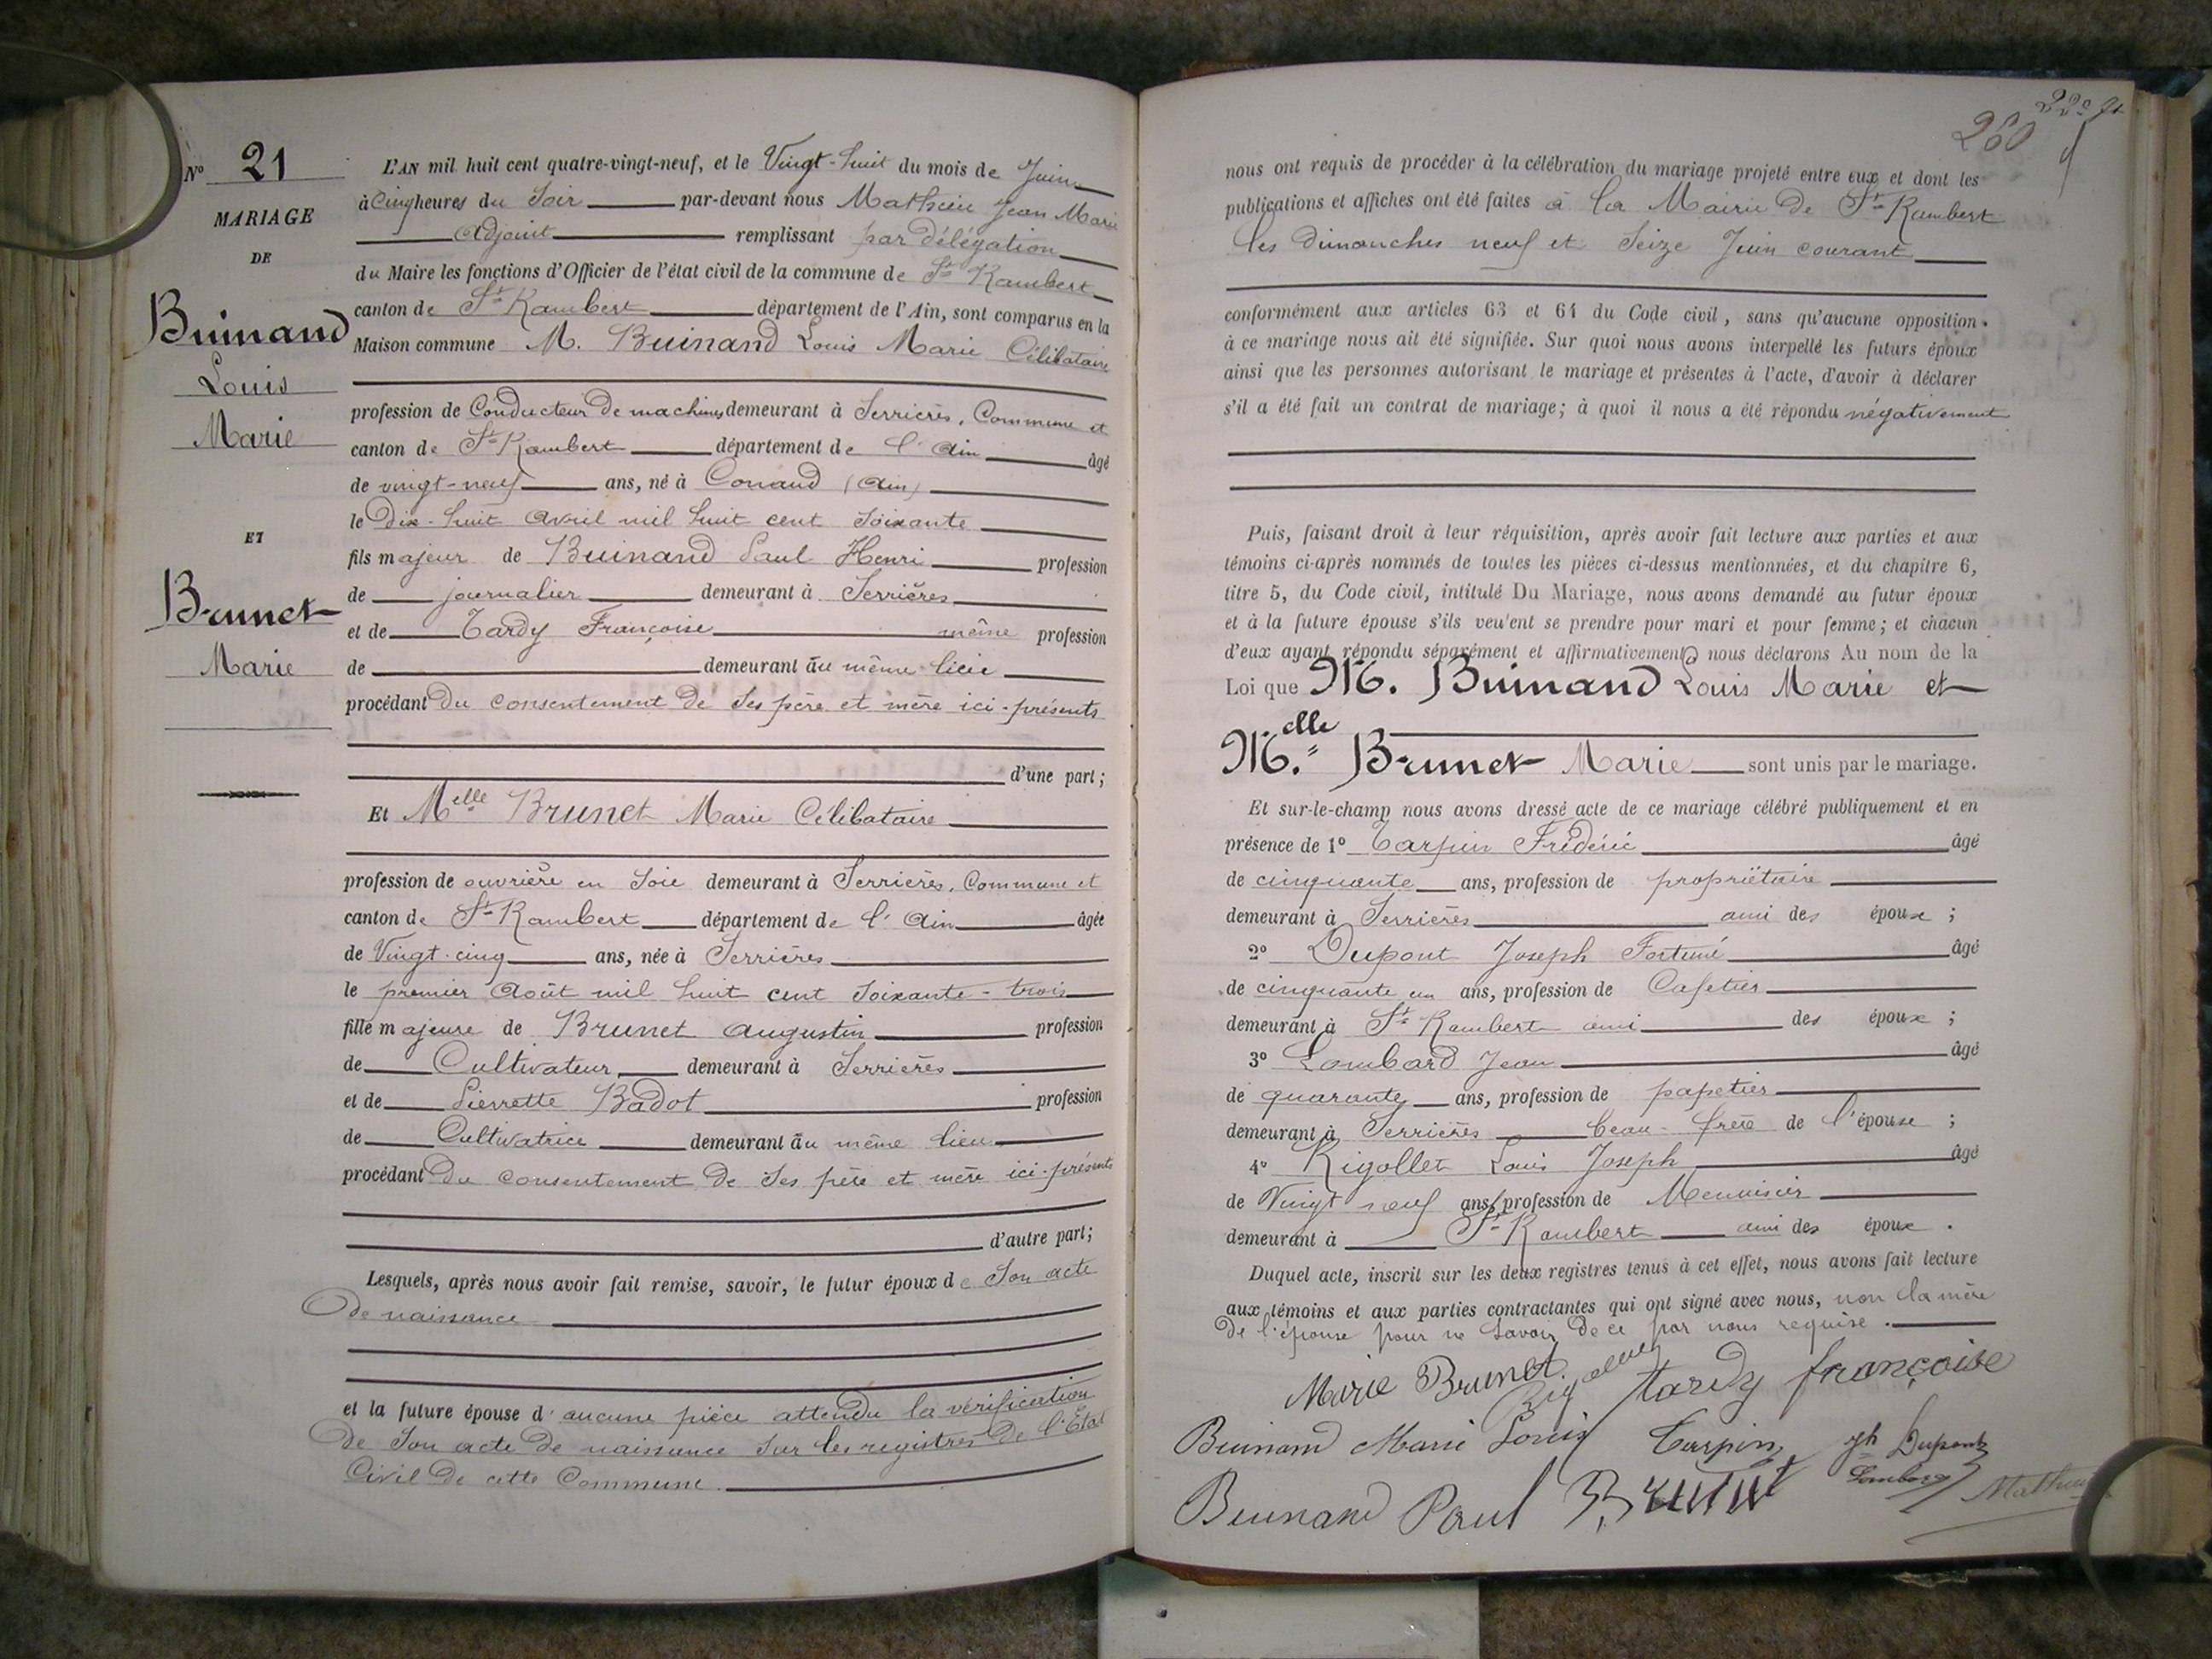 N° 21
MARIAGE
DE
Buinand
Louis
Marie
ET
Brunet
Marie
L'AN mil huit cent quatre-vingt-neuf, et le Vingt-huit du mois de Juin
à Cinq heures du Soir par-devant nous Mathieu Jean Marie
Adjoint remplissant par délégation
du Maire les fonctions d'Officier de l'état civil de la commune de St Rambert
canton de St Rambert département de l'Ain, sont comparus en la
Maison commune M. Buinand Louis Marie Célibataire
profession de Conducteur de machines demeurant à Serrières, Commune et
canton de St Rambert département de l'Ain âgé
de vingt-neuf ans, né à Conand (Ain)
le Dix-huit Avril mil huit cent soixante
fils majeur de Buinand Paul Henri profession
de journalier demeurant à Serrières
et de Tardy Françoise même profession
de demeurant au même lieu
procédant du consentement de ses père et mère ici-présents
d'une part;
Et Melle Brunet Marie Célibataire
profession de ouvrière en soie demeurant à Serrières, Commune et
canton de St Rambert département de l'Ain âgée
de Vingt-cinq ans, née à Serrières
le premier Août mil huit cent soixante-trois
fille majeure de Brunet Augustin profession
de Cultivateur demeurant à Serrières
et de Pierrette Badot profession
de Cultivatrice demeurant au même lieu
procédant du consentement de ses père et mère ici-présents
d'autre part;
Lesquels, après nous avoir fait remise, savoir, le futur époux de son acte
de naissance
et la future épouse d'aucune pièce attendu la vérification
de son acte de naissance sur les registres de l'Etat
Civil de cette Commune.
260
nous ont requis de procéder à la célébration du mariage projeté entre eux et dont les
publications et affiches ont été faites à la Mairie de St Rambert
les dimanches neuf et seize Juin courant
conformément aux articles 63 et 64 du Code civil, sans qu'aucune opposition
à ce mariage nous ait été signifiée. Sur quoi nous avons interpellé les futurs époux
ainsi que les personnes autorisant le mariage et présentes à l'acte, d'avoir à déclarer
s'il a été fait un contrat de mariage; à quoi il nous a été répondu négativement
Puis, faisant droit à leur réquisition, après avoir fait lecture aux parties et aux
témoins ci-après nommés de toutes les pièces ci-dessus mentionnées, et du chapitre 6,
titre 5, du Code civil, intitulé Du Mariage, nous avons demandé au futur époux
et à la future épouse s'ils veulent se prendre pour mari et pour femme; et chacun
d'eux ayant répondu séparément et affirmativement nous déclarons Au nom de la
Loi que M. Buinand Louis Marie et
Melle Brunet Marie sont unis par le mariage.
Et sur-le-champ nous avons dressé acte de ce mariage célébré publiquement et en
présence de 1° Tarpin Frédéric âgé
de cinquante ans, profession de propriétaire
demeurant à Serrières ami des époux ;
2° Dupont Joseph Fortuné âgé
de cinquante un ans, profession de Cafetier
demeurant à St Rambert ami des époux ;
3° Lombard Jean âgé
de quarante ans, profession de papetier
demeurant à Serrières beau-frère de l'épouse ;
4° Rigollet Louis Joseph âgé
de Vingt neuf ans, profession de Menuisier
demeurant à St Rambert ami des époux .
Duquel acte, inscrit sur les deux registres tenus à cet effet, nous avons fait lecture
aux témoins et aux parties contractantes qui ont signé avec nous, non la mère
de l'épouse pour ne savoir de ce par nous requise.
Marie Brunet tardy françoise
Buinand Marie Louis Tarpin Jh Dupont
Lombard Mathieu
Buinand Paul Brunet